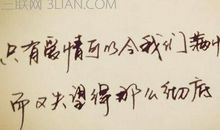 三联网 3LIAN.COM
只有爱情可以令我们满
而又失望得那么彻底